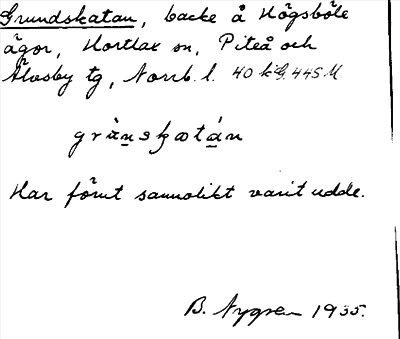 Grundskatan, backe å Högsböle
ägor, Hortlax sn, Piteå och
Älvsby tg, Norrb. l. 40 k G. 445 M
grànskatán
Har förut sannolikt varit udde.
B. Nygren 1935.